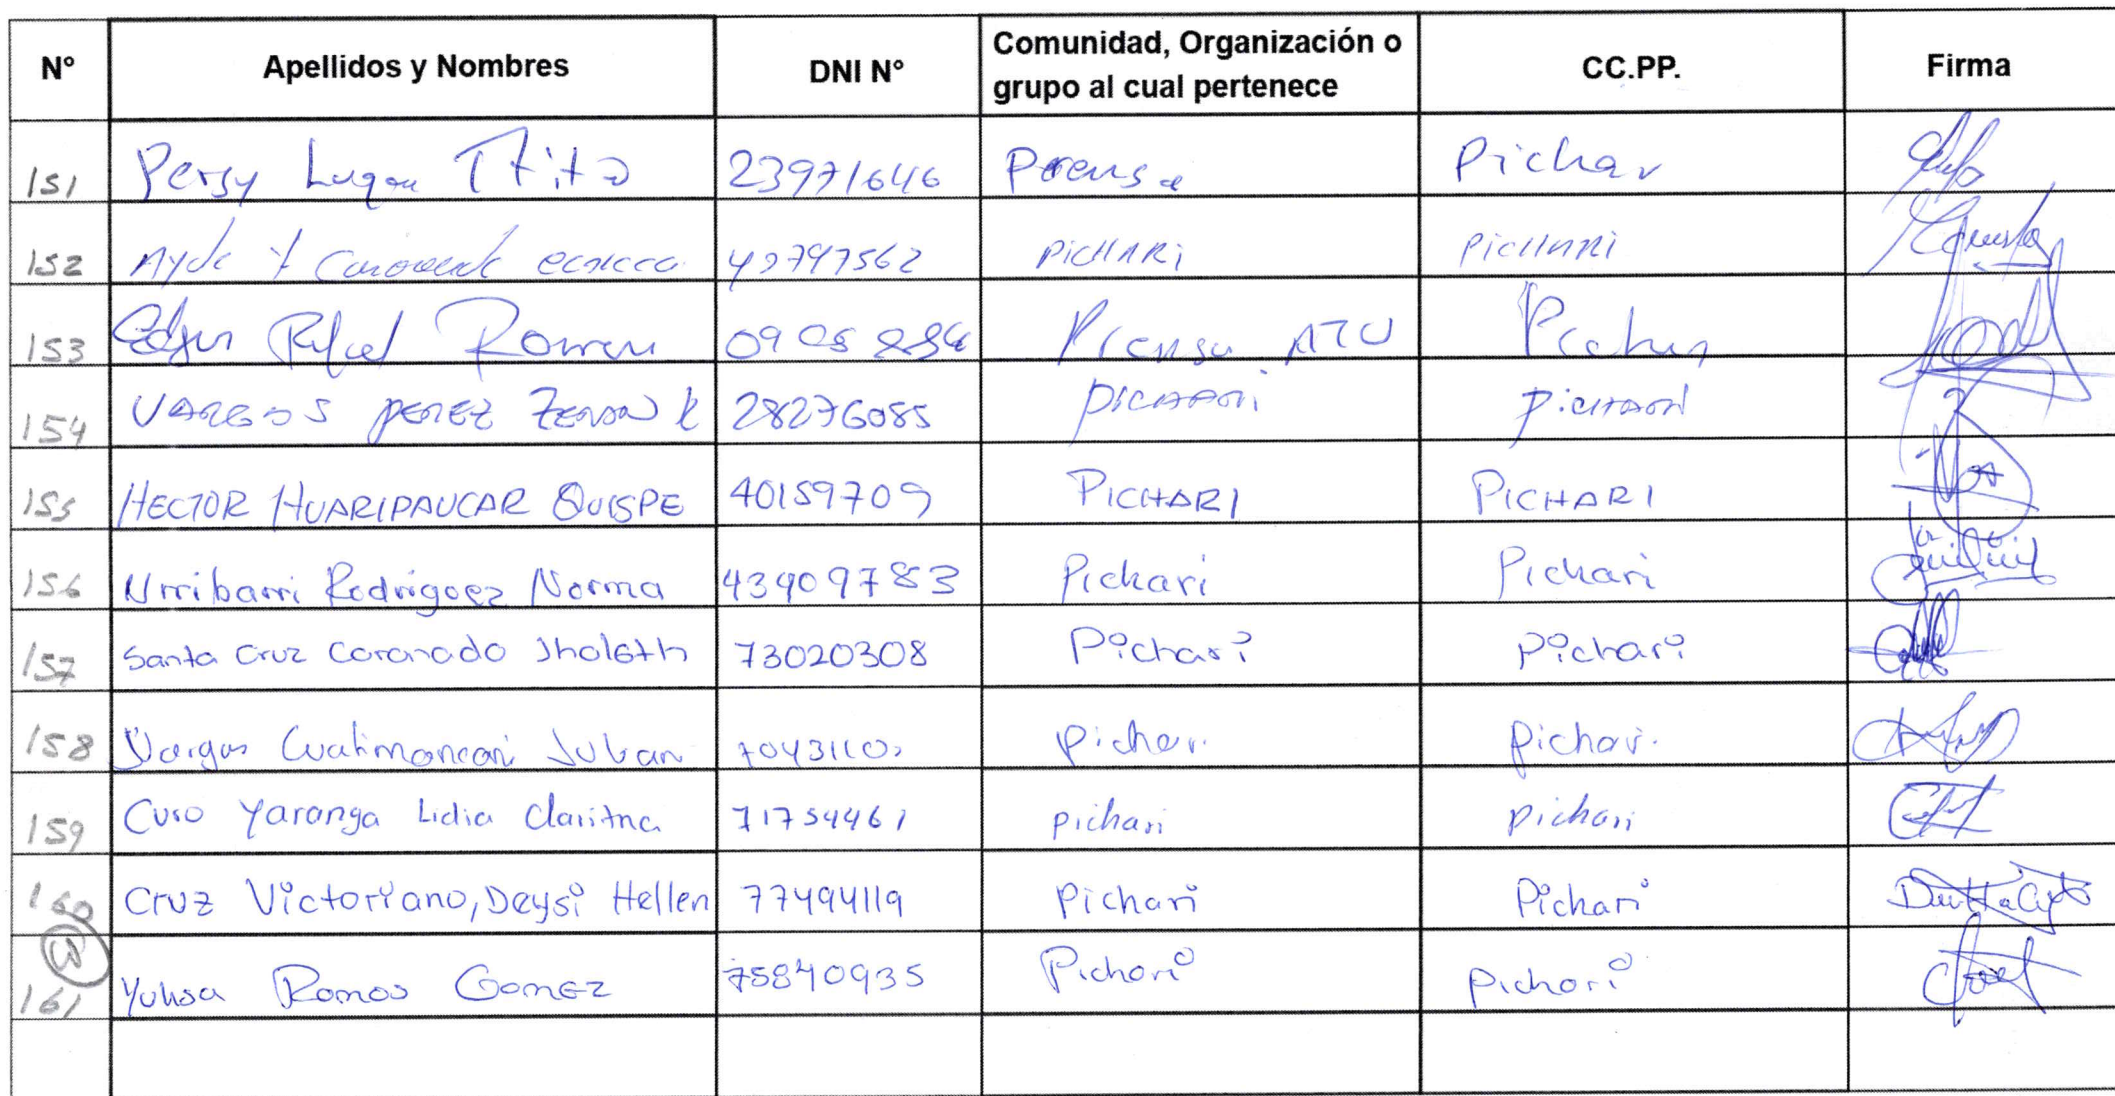 N° Apellidos y Nombres DNI N° Comunidad, Organización o grupo al cual pertenece CC.PP. Firma
151 Persy Lugon Ttito 23971646 Prensa Pichar
152 PICHARI PICHARI
153 Edgar Rafael Prensa ATU
154 VARGAS PEREZ ZENON R 28276085 PICHARI PICHARI
155 HECTOR HUARIPAUCAR QUISPE 40159709 PICHARI PICHARI
156 Urribarri Rodrigoez Norma 43909783 Pichari Pichari
157 Santa Cruz Coronado Jhol6th 73020308 Pichari Pichari
158 Vargas Juban Pichari Pichari
159 Curo Yaranga Lidia 71754461 pichari pichari
160 Cruz Victoriano, Deysi Hellen 77494119 Pichari Pichari
161 Ramos Gomez 75840935 Pichari Pichari